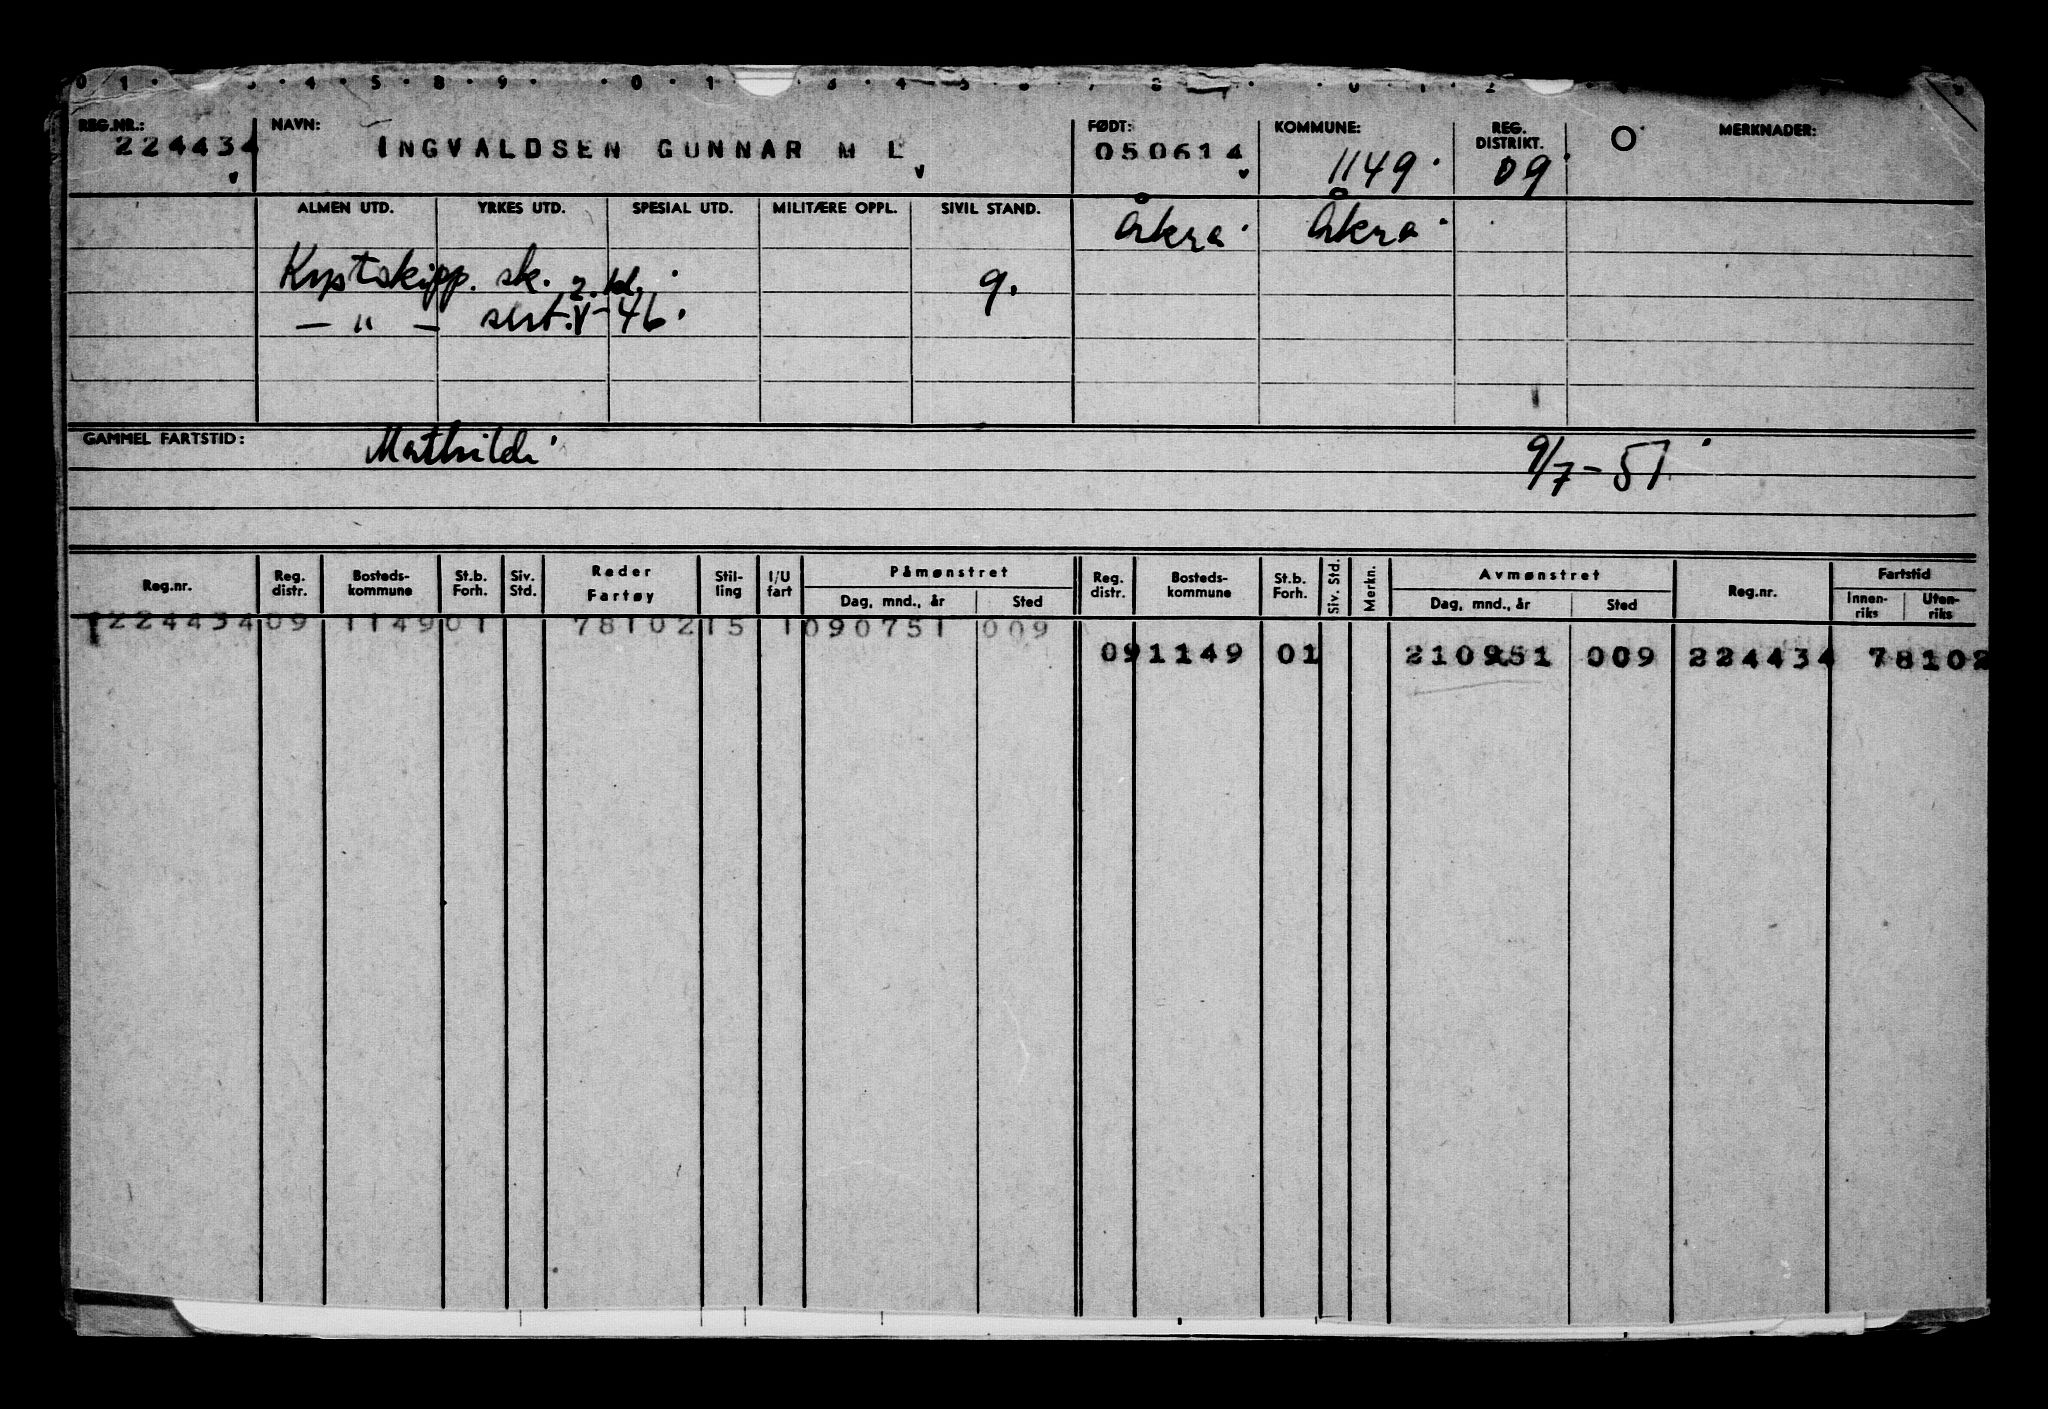 REG.NR.: NAVN: FØDT: KOMMUNE: REG. DISTRIKT. O MERKNADER:
224434 INGVALDSEN GUNNAR M L 050614 1149 09
ALMEN UTD. YRKES UTD. SPESIAL UTD. MILITÆRE OPPL. SIVIL STAND. Åkra Åkra
Kystskipp. sk. 2. kl. g.
— " — sert. V - 46.
GAMMEL FARTSTID: Mathilde 9/7 - 51
Reg.nr. Reg. distr. Bosteds- kommune St.b. Forh. Siv. Std. Reder Fartøy Stil- ling I/U fart Påmønstret Dag, mnd., år Sted Reg. distr. Bosteds- kommune St.b. Forh. Siv. Std. Merkn. Avmønstret Dag, mnd., år Sted Reg.nr. Fartstid Innen- riks Uten- riks
224434 09 1149 01 78102 15 1 090751 009
09 1149 01 210951 009 224434 78102